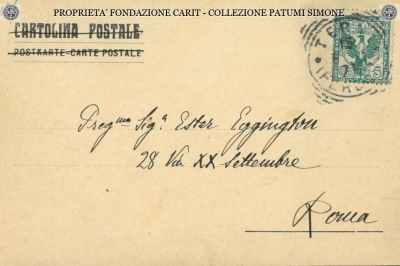 PROPRIETA' FONDAZIONE CARIT - COLLEZIONE PATUMI SIMONE
CARTOLINA POSTALE
POSTKARTE-CARTE POSTALE
Pregma Siga Ester Eggington
28 Via XX Settembre
Roma